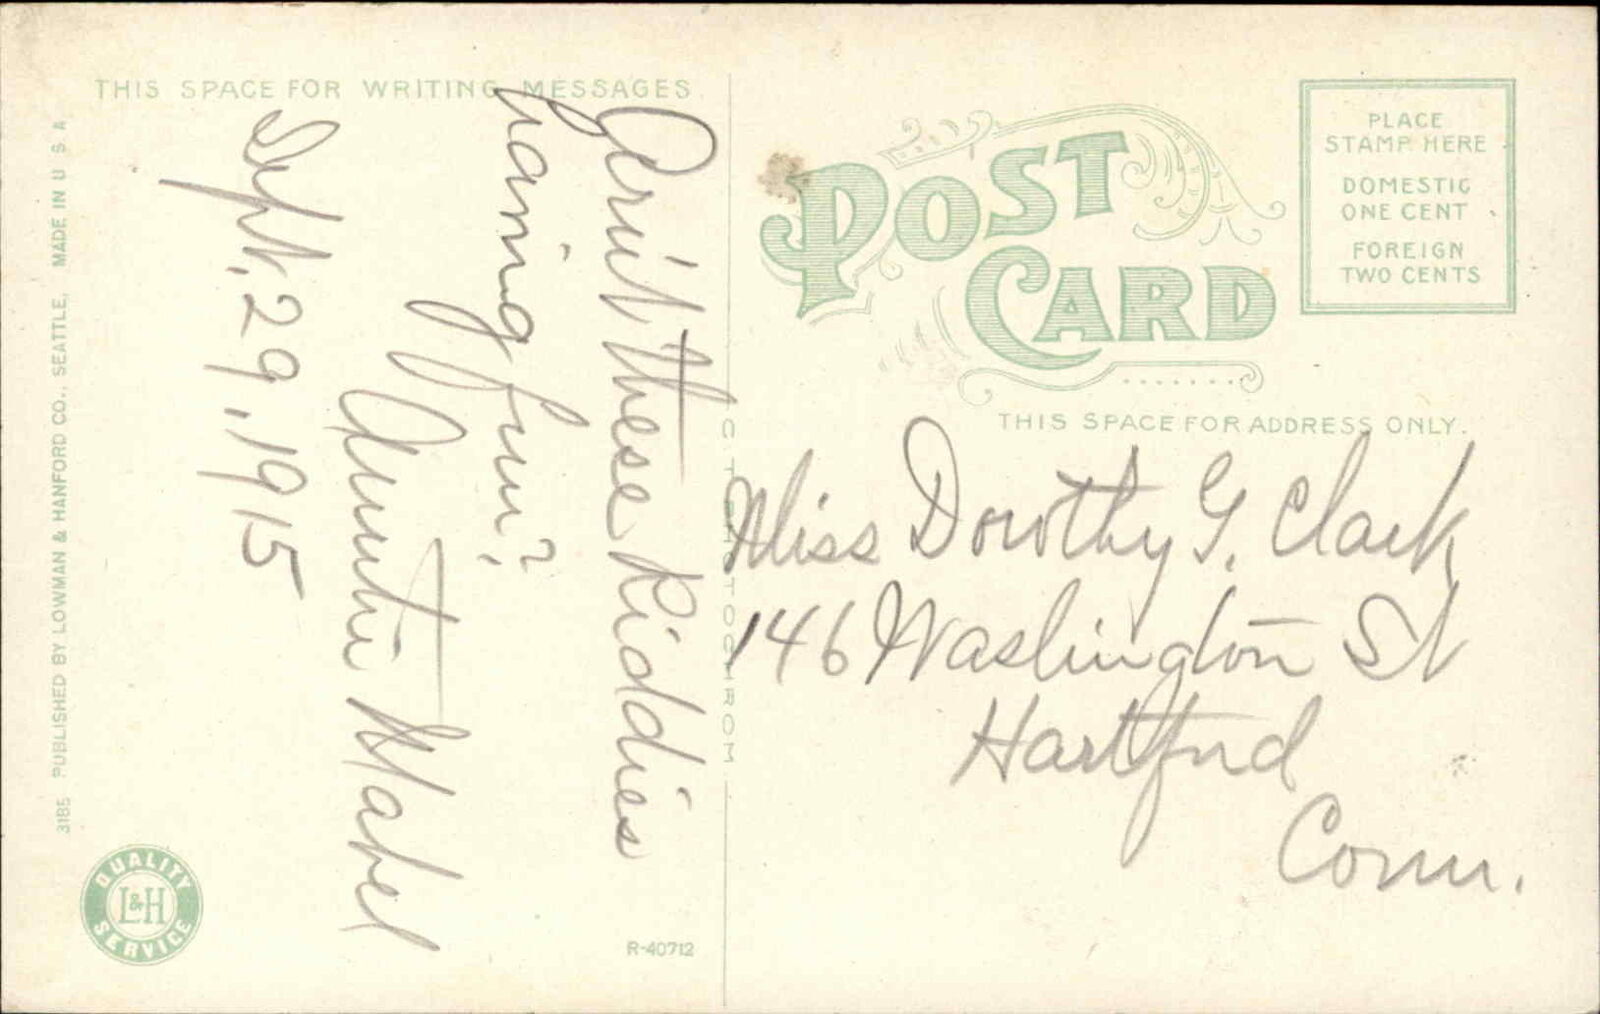 THIS SPACE FOR WRITING MESSAGES
Arn't these Kiddies
having fun?
Auntie Mabel
Sept. 29, 1915
3185 PUBLISHED BY LOWMAN & HANFORD CO., SEATTLE, MADE IN U S A
QUALITY
L&H
SERVICE
R-40712
POST
CARD
PLACE
STAMP HERE
DOMESTIC
ONE CENT
FOREIGN
TWO CENTS
THIS SPACE FOR ADDRESS ONLY.
Miss Dorothy G. Clark
146 Washington St
Hartford
Conn.